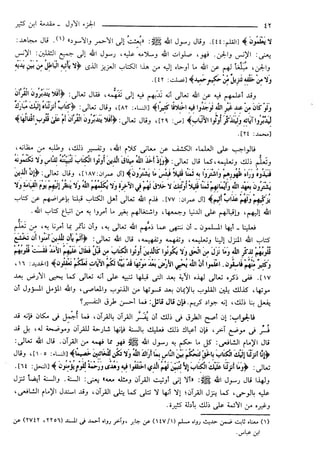 ٤٢ الجزء الأول - مقدمة ابن كثير
لَا يَعْلَمُونَ﴾ [القلم:٤٤]. وقال رسول الله ﷺ: «بُعِثتُ إلى الأحمر والأسود» (١). قال مجاهد:
يعني: الإنس والجن. فهو، صلوات الله وسلامه عليه، رسول الله إلى جميع الثقلين: الإنس
والجن، مبلغًا لهم عن الله ما أوحاه إليه من هذا الكتاب العزيز الذي ﴿لَا يَأْتِيهِ الْبَاطِلُ مِنْ بَيْنِ يَدَيْهِ
وَلَا مِنْ خَلْفِهِ تَنْزِيلٌ مِنْ حَكِيمٍ حَمِيدٍ﴾ [فصلت: ٤٢].
وقد أعلمهم فيه عن الله تعالى أنه ندبهم فيه إلى تفهمه، فقال تعالى: ﴿أَفَلَا يَتَدَبَّرُونَ الْقُرْآنَ
وَلَوْ كَانَ مِنْ عِنْدِ غَيْرِ اللَّهِ لَوَجَدُوا فِيهِ اخْتِلَافًا كَثِيرًا﴾ [النساء: ٨٢]، وقال تعالى: ﴿كِتَابٌ أَنْزَلْنَاهُ إِلَيْكَ مُبَارَكٌ
لِيَدَّبَّرُوا آيَاتِهِ وَلِيَتَذَكَّرَ أُولُو الْأَلْبَابِ﴾ [ص: ٢٩]، وقال تعالى: ﴿أَفَلَا يَتَدَبَّرُونَ الْقُرْآنَ أَمْ عَلَى قُلُوبٍ أَقْفَالُهَا﴾
[محمد: ٢٤].
فالواجب على العلماء الكشف عن معاني كلام الله، وتفسير ذلك، وطلبه من مظانه،
وتعلُّم ذلك وتعليمه، كما قال تعالى: ﴿وَإِذْ أَخَذَ اللَّهُ مِيثَاقَ الَّذِينَ أُوتُوا الْكِتَابَ لَتُبَيِّنُنَّهُ لِلنَّاسِ وَلَا تَكْتُمُونَهُ
فَنَبَذُوهُ وَرَاءَ ظُهُورِهِمْ وَاشْتَرَوْا بِهِ ثَمَنًا قَلِيلًا فَبِئْسَ مَا يَشْتَرُونَ﴾ [آل عمران: ١٨٧]، وقال تعالى: ﴿إِنَّ الَّذِينَ
يَشْتَرُونَ بِعَهْدِ اللَّهِ وَأَيْمَانِهِمْ ثَمَنًا قَلِيلًا أُولَئِكَ لَا خَلَاقَ لَهُمْ فِي الْآخِرَةِ وَلَا يُكَلِّمُهُمُ اللَّهُ وَلَا يَنْظُرُ إِلَيْهِمْ يَوْمَ الْقِيَامَةِ وَلَا
يُزَكِّيهِمْ وَلَهُمْ عَذَابٌ أَلِيمٌ﴾ [آل عمران: ٧٧]. فذم الله تعالى أهل الكتاب قبلنا بإعراضهم عن كتاب
الله إليهم، وإقبالهم على الدنيا وجمعها، واشتغالهم بغير ما أمروا به من اتباع كتاب الله.
فعلينا ، أيها المسلمون ، أن ننتهي عما ذمَّهم الله تعالى به، وأن نأتمر بما أمرنا به، من تعلُّم
كتاب الله المنزل إلينا وتعليمه، وتفهمه وتفهيمه، قال الله تعالى: ﴿أَلَمْ يَأْنِ لِلَّذِينَ آمَنُوا أَنْ تَخْشَعَ
قُلُوبُهُمْ لِذِكْرِ اللَّهِ وَمَا نَزَلَ مِنَ الْحَقِّ وَلَا يَكُونُوا كَالَّذِينَ أُوتُوا الْكِتَابَ مِنْ قَبْلُ فَطَالَ عَلَيْهِمُ الْأَمَدُ فَقَسَتْ قُلُوبُهُمْ
وَكَثِيرٌ مِنْهُمْ فَاسِقُونَ. اعْلَمُوا أَنَّ اللَّهَ يُحْيِي الْأَرْضَ بَعْدَ مَوْتِهَا قَدْ بَيَّنَّا لَكُمُ الْآيَاتِ لَعَلَّكُمْ تَعْقِلُونَ﴾ [الحديد: ١٦،
١٧]. ففي ذكره تعالى لهذه الآية بعد التي قبلها تنبيه على أنه تعالى كما يحيي الأرض بعد
موتها، كذلك يلين القلوب بالإيمان بعد قسوتها من الذنوب والمعاصي، والله المؤمل المسؤول أن
يفعل بنا ذلك، إنه جواد كريم. فإن قال قائل: فما أحسن طرق التفسير؟
فالجواب: إن أصح الطرق في ذلك أن يُفَسَّر القرآن بالقرآن، فما أُجمِل في مكان فإنه قد
فُسِّر في موضع آخر، فإن أعياك ذلك فعليك بالسنة فإنها شارحة للقرآن وموضحة له، بل قد
قال الإمام الشافعي: كل ما حكم به رسول الله ﷺ فهو مما فهمه من القرآن. قال الله تعالى:
﴿إِنَّا أَنْزَلْنَا إِلَيْكَ الْكِتَابَ بِالْحَقِّ لِتَحْكُمَ بَيْنَ النَّاسِ بِمَا أَرَاكَ اللَّهُ وَلَا تَكُنْ لِلْخَائِنِينَ خَصِيمًا﴾ [النساء: ١٠٥]، وقال
تعالى: ﴿وَمَا أَنْزَلْنَا عَلَيْكَ الْكِتَابَ إِلَّا لِتُبَيِّنَ لَهُمُ الَّذِي اخْتَلَفُوا فِيهِ وَهُدًى وَرَحْمَةً لِقَوْمٍ يُؤْمِنُونَ﴾ [النحل: ٦٤].
ولهذا قال رسول الله ﷺ: «ألا إني أوتيت القرآن ومثله معه» يعني: السنة. والسنة أيضاً تنزل
عليه بالوحي، كما ينزل القرآن؛ إلا أنها لا تتلى كما يتلى القرآن، وقد استدل الإمام الشافعي،
وغيره من الأئمة على ذلك بأدلة كثيرة.
(١) معناه ثابت ضمن حديث رواه مسلم (١/ ١٤٧) عن جابر، وآخر رواه أحمد في المسند (٢٢٥٦، ٢٧٤٢) عن
ابن عباس.